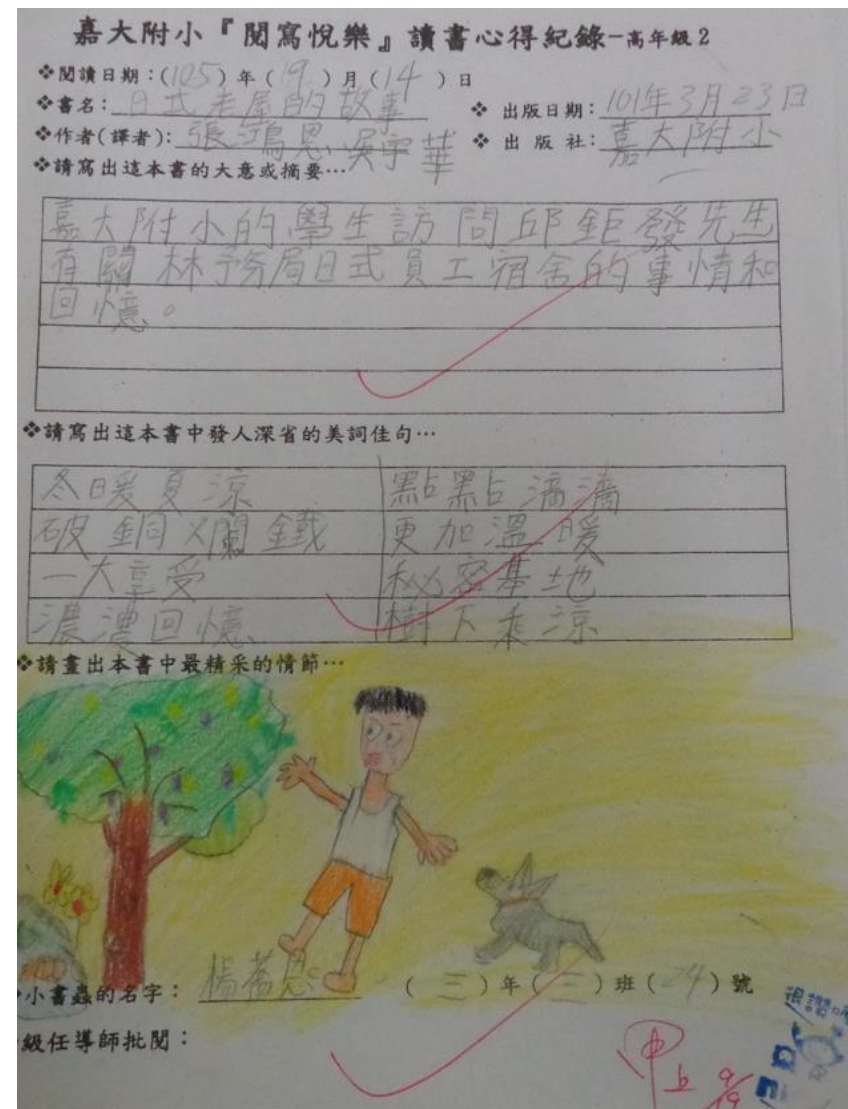 嘉大附小『閱寫悅樂』讀書心得紀錄-高年級2
❖閱讀日期:(105)年(9)月(14)日
❖書名:日式老屋的故事 ❖出版日期:101年3月23日
❖作者(譯者):張鴻恩 吳宇華 ❖出版社:嘉大附小
❖請寫出這本書的大意或摘要…
嘉大附小的學生訪問邱鉅發先生
有關林務局日式員工宿舍的事情和
回憶。
❖請寫出這本書中發人深省的美詞佳句…
冬暖夏涼 點點滴滴
破銅爛鐵 更加溫暖
一大享受 秘密基地
濃濃回憶 樹下乘涼
❖請畫出本書中最精采的情節…
小書蟲的名字:楊 恩 (三)年(三)班(24)號
級任導師批閱:
甲上
很讚